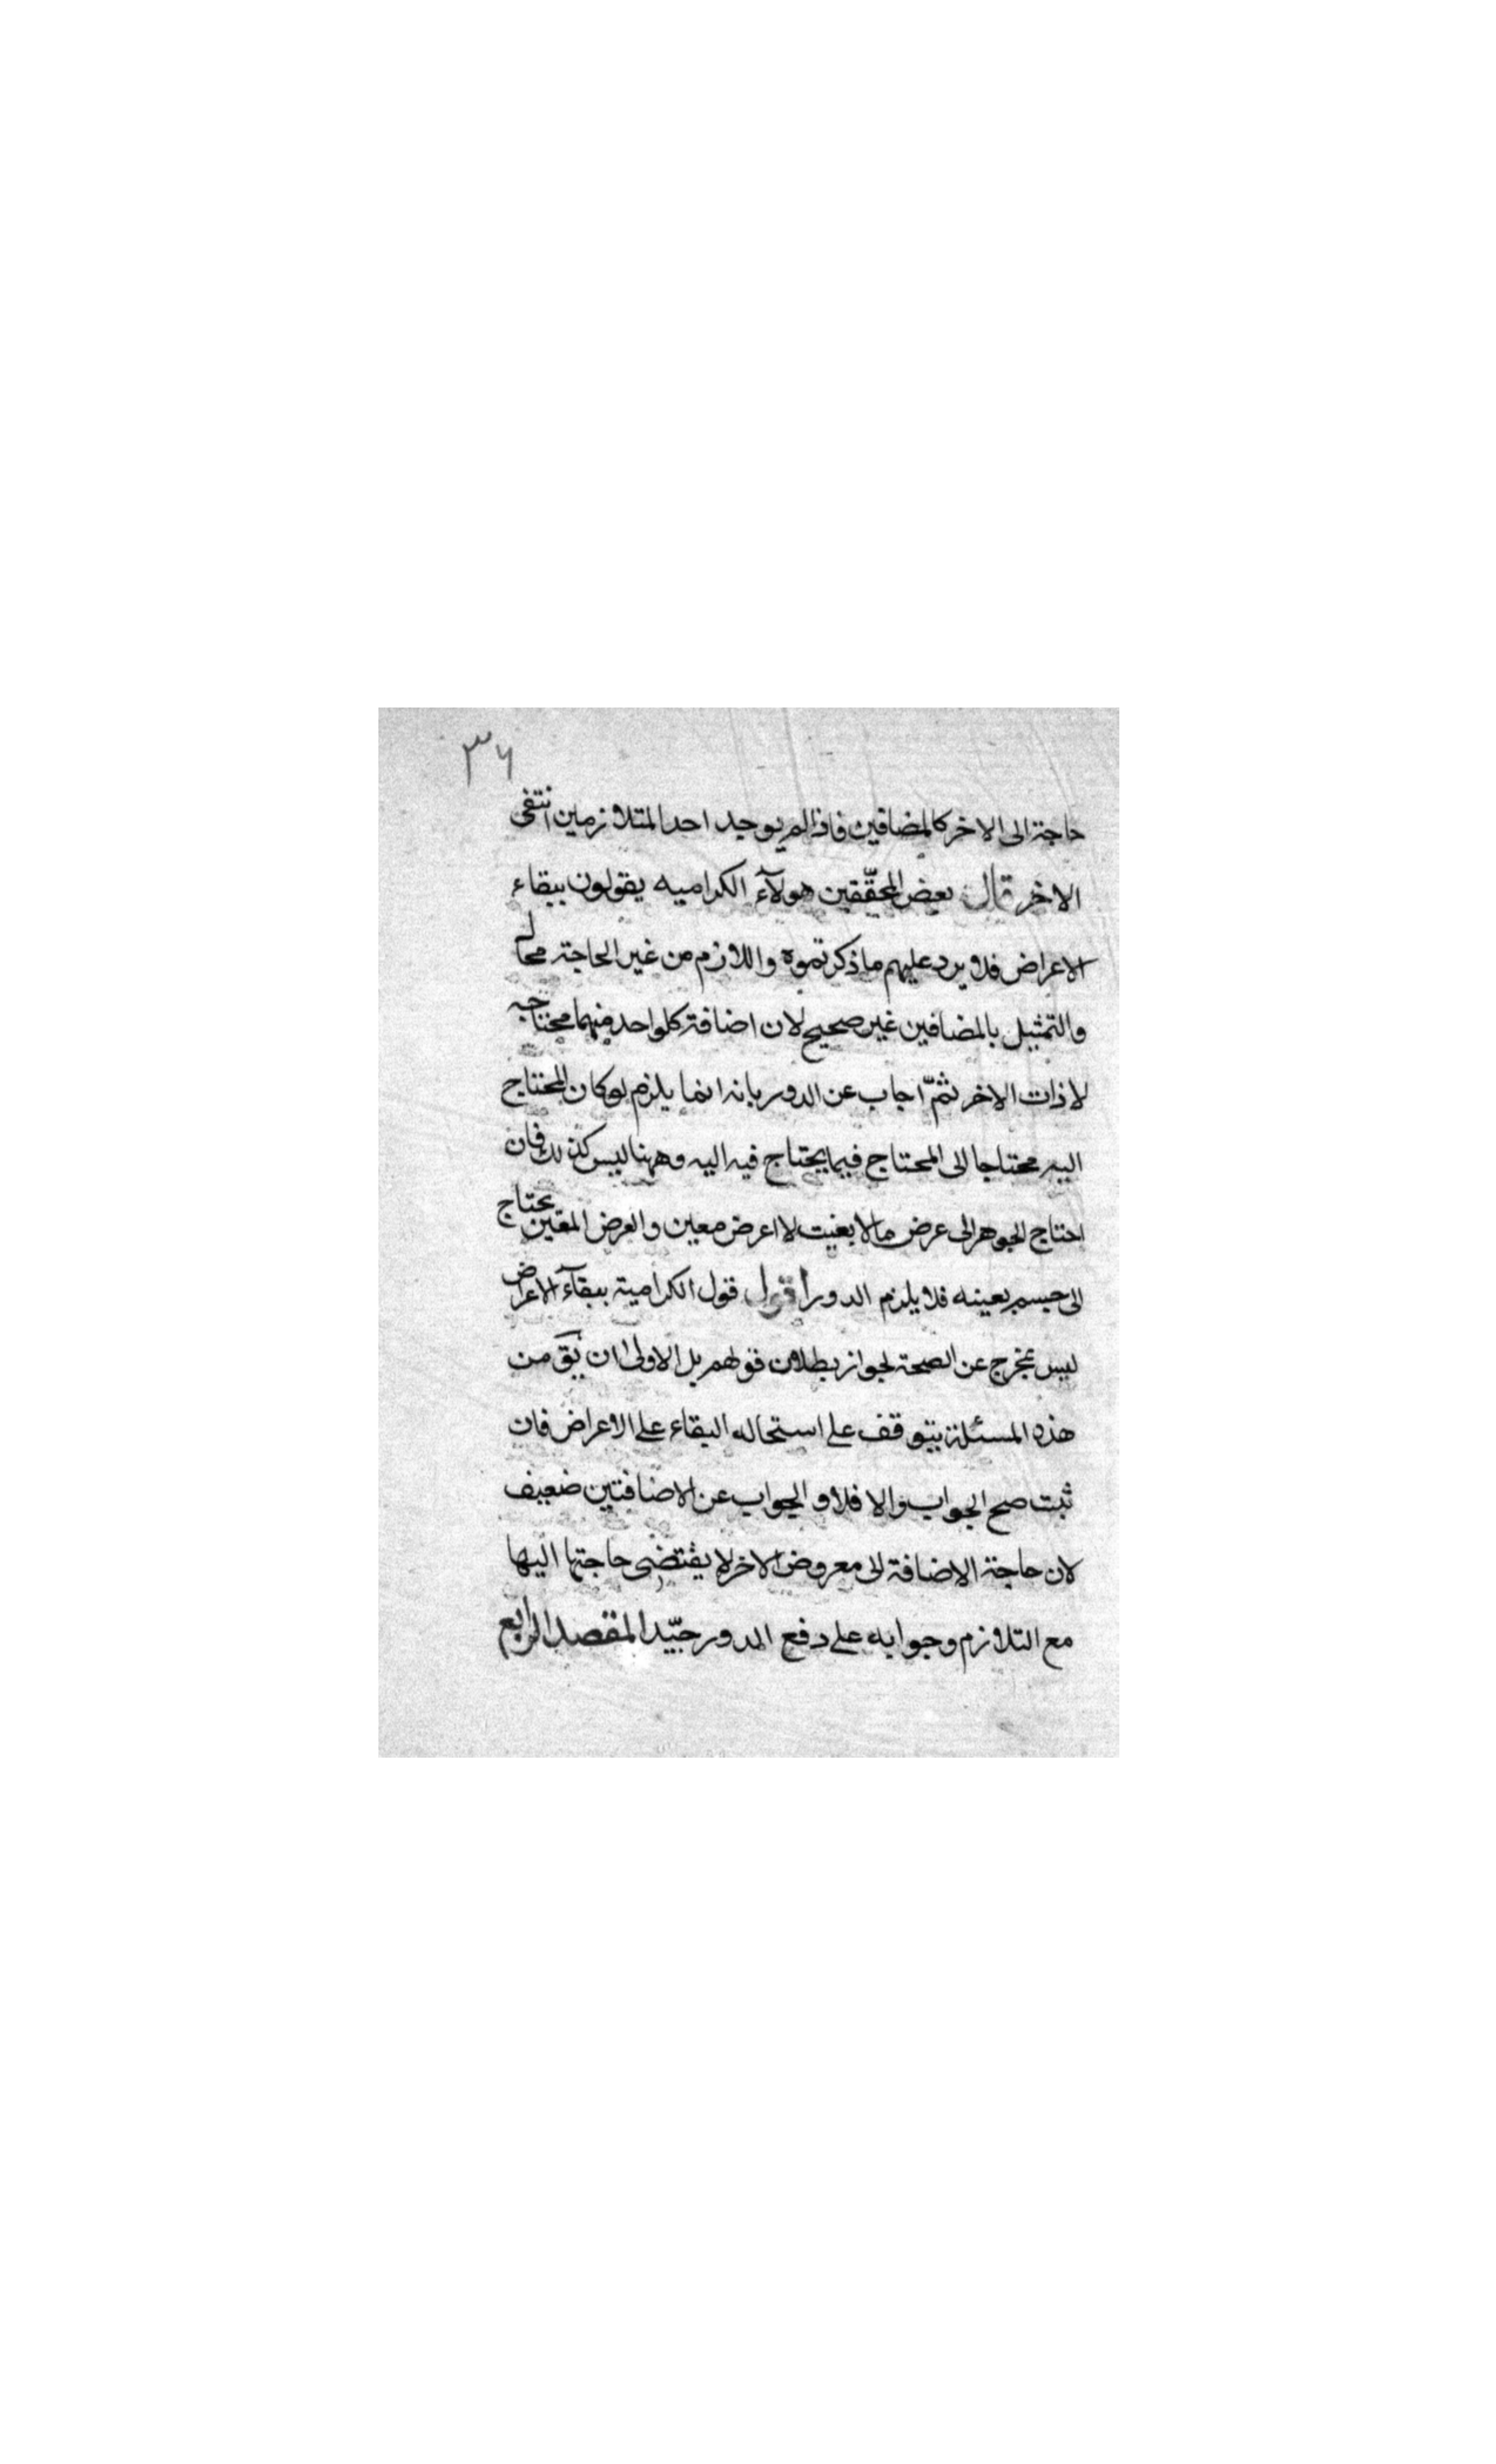 ٣٦
حاجة الى الاخر كالمضافين فاذا لم يوجد احد المتلازمين انتفى
الاخر قال بعض المحقّقين هولآء الكراميه يقولون ببقاء
الاعراض فلا يرد عليهم ما ذكرتموه واللازم من غير الحاجة محال
والتمثيل بالمضافين غير صحيح لان اضافة كلواحد منهما محتاجه
لا ذات الاخر ثمّ اجاب عن الدور بانه انما يلزم لو كان المحتاج
اليه محتاجا الى المحتاج فيما يحتاج فيه اليه وههنا ليس كذلك فان
احتاج الجوهر الى عرض ما لا بعينه لا اعرض معين والعرض المعين يحتاج
الى جسم بعينه فلا يلزم الدور اقول قول الكرامية ببقآء الاعراض
ليس بمخرج عن الصحة لجواز بطلان قولهم بل الاولى ان يق من
هذه المسئلة يتوقف على استحاله البقاء على الاعراض فان
ثبت صح الجواب والا فلا والجواب عن الاضافتين ضعيف
لان حاجة الاضافة الى معروض الاخر لا يقتضى حاجتها اليها
مع التلازم وجوابه على دفع الدور جيّد المقصد الرابع